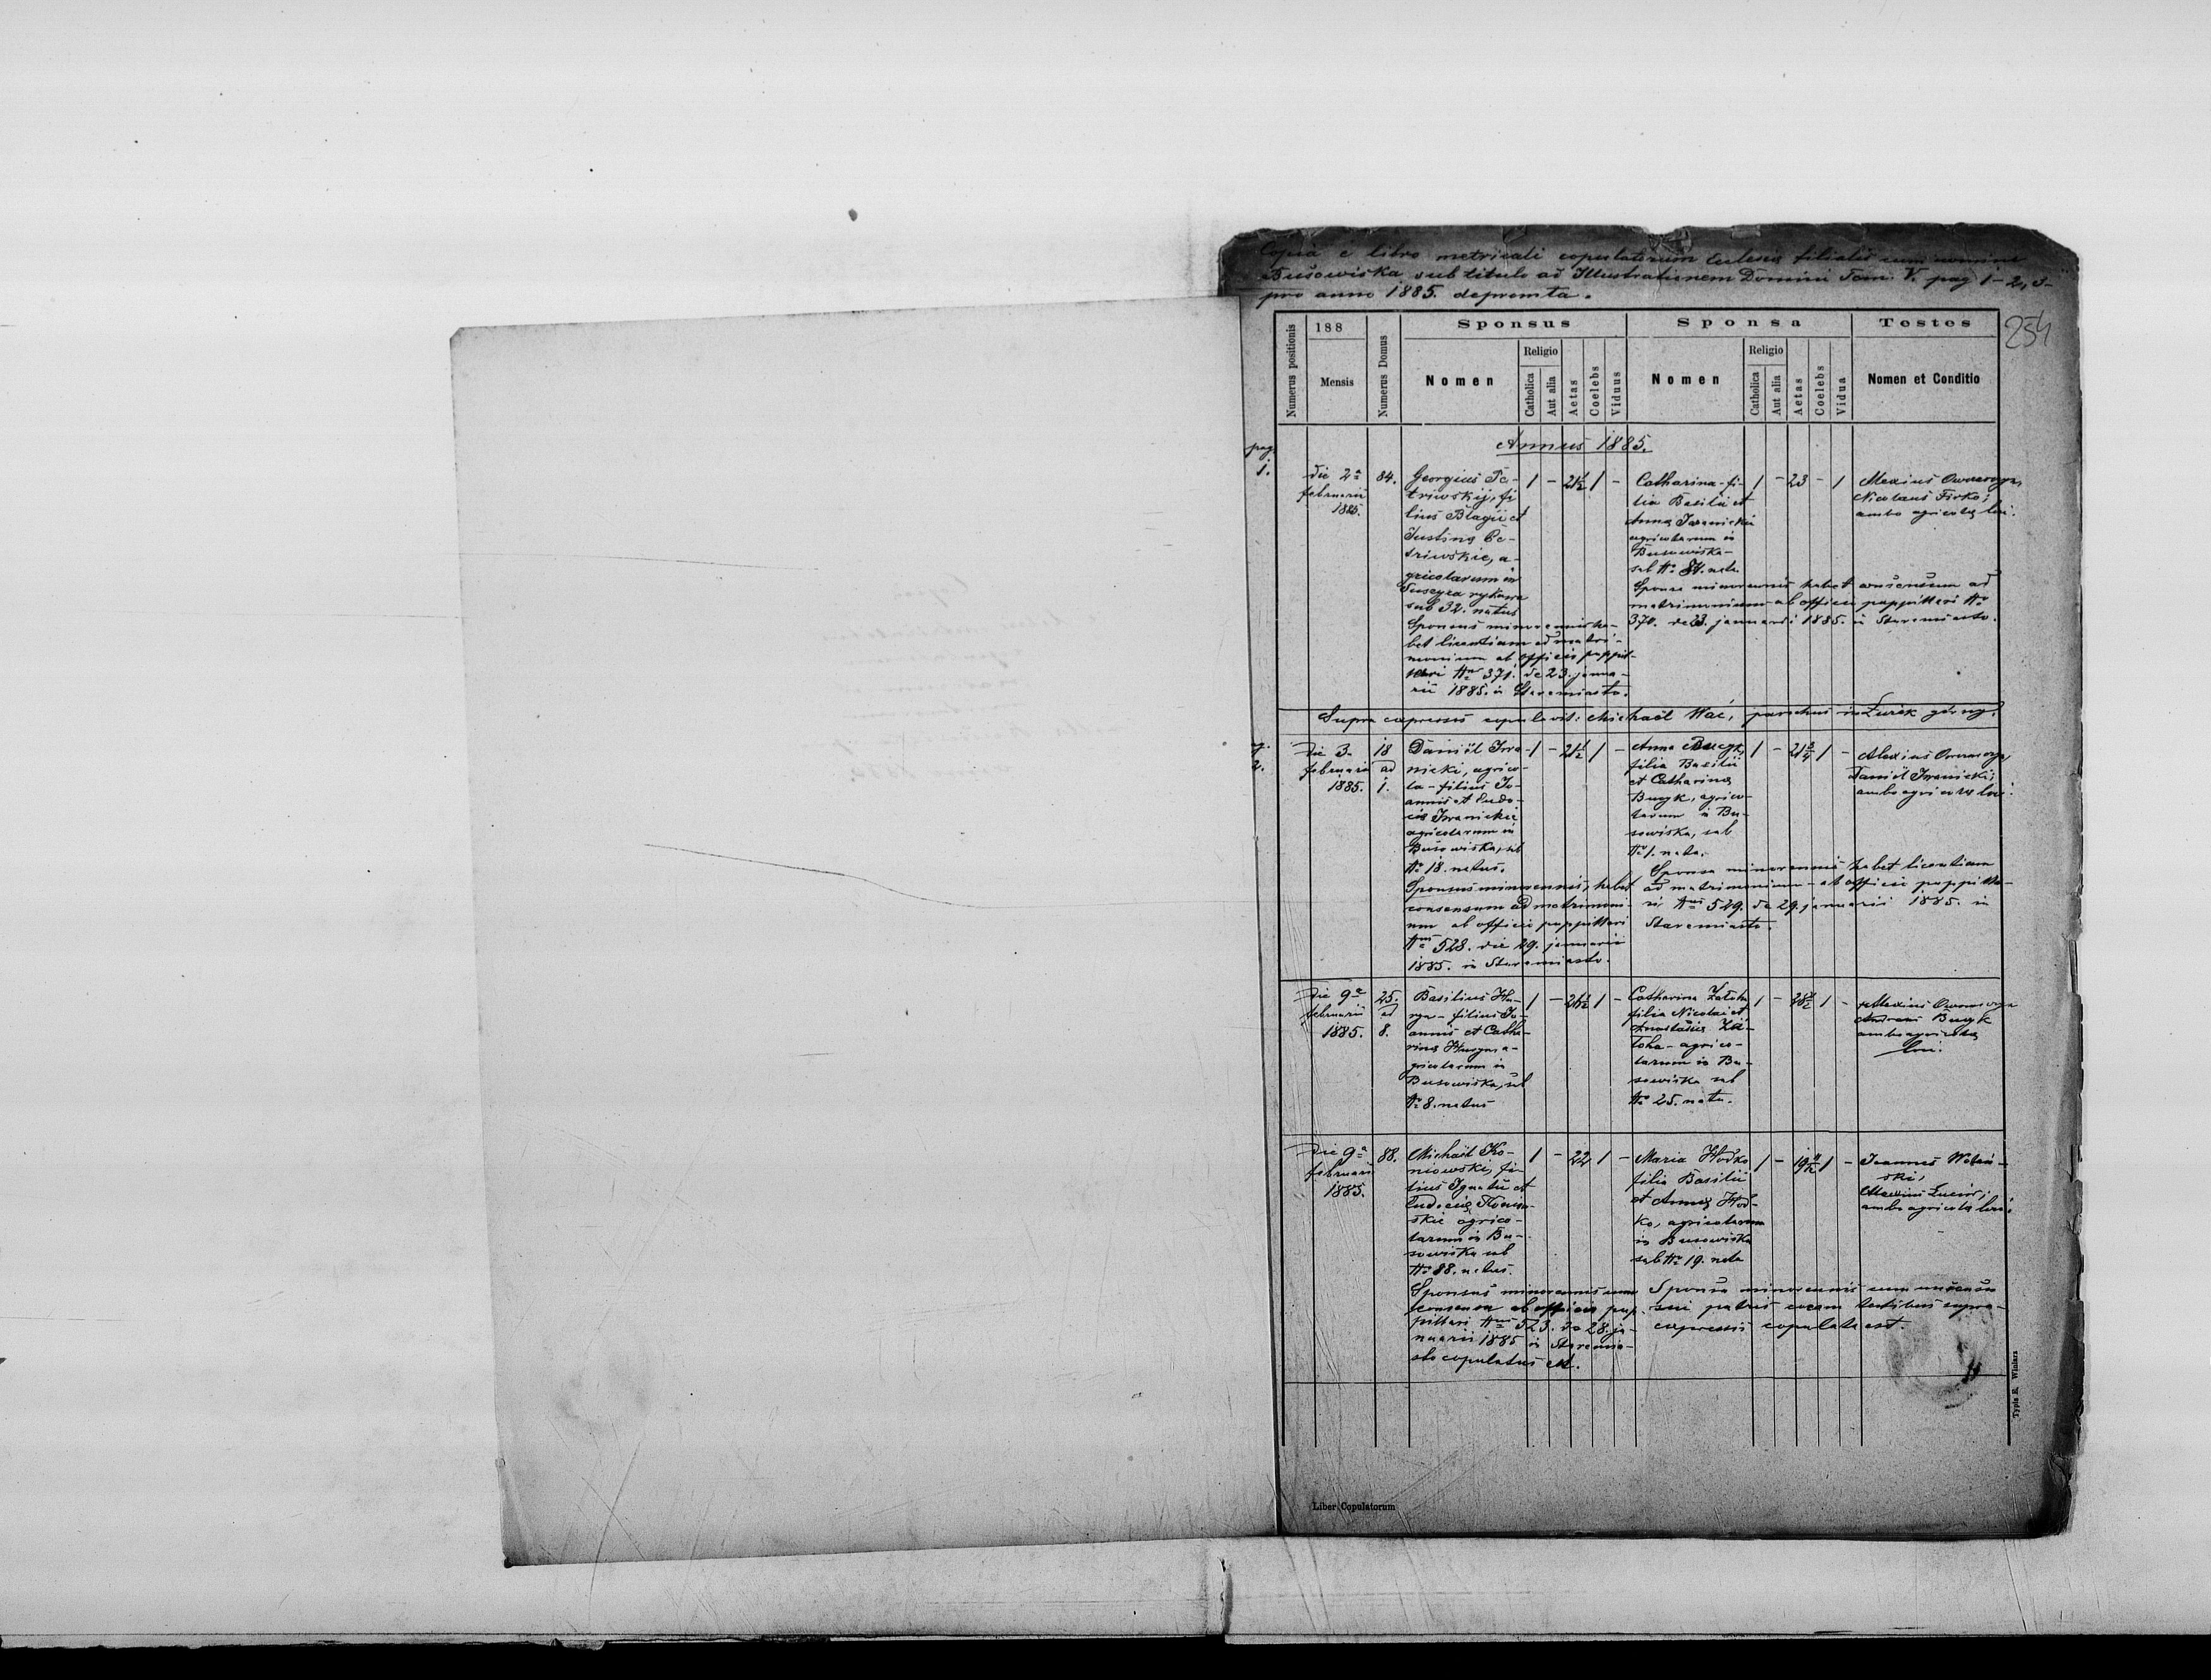 Copia e libro metricali copulatorum Eclesiæ filialis cum nomine
Busowiska sub titulo ad Illustrationem Domini Tom. V. pag 1-2, 3-
pro anno 1885. deprompta.
254
Numerus positionis
188
Mensis
Numerus Domus
Sponsus
Nomen
Religio
Catholica
Aut alia
Aetas
Coelebs
Viduus
Sponsa
Nomen
Religio
Catholica
Aut alia
Aetas
Coelebs
Vidua
Testes
Nomen et Conditio
Annus 1885.
pag.
1.
die 2a
februarii
1885.
84.
Georgius Pe-
triwskij, fi
lius Blagii et
Justinæ Pe-
triwskie, a-
gricolarum in
rykowa
sub 32. natus
Sponsus minorennis ha-
bet licentiam ad matri-
monium ab officio puppil-
lari No 371. de 23. janua-
rii 1885. in Staremiasto.
1 - 21½ 1 -
Catharina fi-
lia Basilii et
Annæ Iwanickie
agricolarum in
Busowiska-
sub No 84. nata
Sponsa minorennis habet consensum ad
matrimonium ab officio puppillari No
370. de 23. januarii 1885. in Staremiasto.
1 - 23 - 1
Alexius
Nicolaus Firko;
ambo agricolæ loci.
Supra expressos copulavit: Michaël Kac, parochus in Łużek górny.
2.
Die 3-
februarii
1885.
18
ad
1.
Daniël Iwa-
nicki, agrico-
la - filius Jo-
annis et Eudo-
ciæ Iwanickie
agricolarum in
Busowiska, sub
No 18. natus.
Sponsus minorennis, habet
consensum ad matrimoni-
um ab officio puppillari
No 528. die 29. januarii
1885. in Staremiasto.
1 - 21½ 1 -
Anna Bucyk,
filia Basilii
et Catharinæ
Bucyk, agrico-
larum in Bu-
sowiska, sub
No 1. nata.
Sponsa minorennis habet licentiam
ad matrimonium - ab officio puppilla-
ri No 529. de 29. januarii 1885. in
Staremiasto.
1 - 21¾ 1 -
Alexius
Daniël Iwanicki;
ambo agricolæ loci.
Die 9a
februarii
1885.
25.
ad
8.
Basilius Hu-
ryn - filius Jo-
annis et Catha-
rinæ a-
gricolarum in
Busowiska, sub
No 8. natus
1 - 1 -
Catharina Załoha
filia Nicolai et
Anastasiæ Za-
łoha - agrico-
larum in Bu-
sowiska sub
No 25. nata.
1 - 28½ 1 -
Alexius
Andreas Bucyk
ambo agricolæ
loci.
Die 9a
februarii
1885.
88.
Michaël Ko-
niowski, fi-
lius Ignatii et
Eudociæ Koniow-
skie agrico-
larum in Bu-
sowiska sub
No 88. natus.
Sponsus minorennis cum
consensu ab officio pup-
pillari No 523. de 28. ja-
nuarii 1885 in Staremia-
sto copulatus est.
1 - 22 1 -
Maria Hodko
filia Basilii
et Annæ Hod-
ko, agricolarum
in Busowiska
sub No 19. nata
Sponsa minorennis cum consensu
sui patris coram testibus supra-
expressis copulata est.
1 - 1 -
Joannes
ski,
Alexius
ambo agricolæ loci.
Typis E. Winiarz
Liber Copulatorum